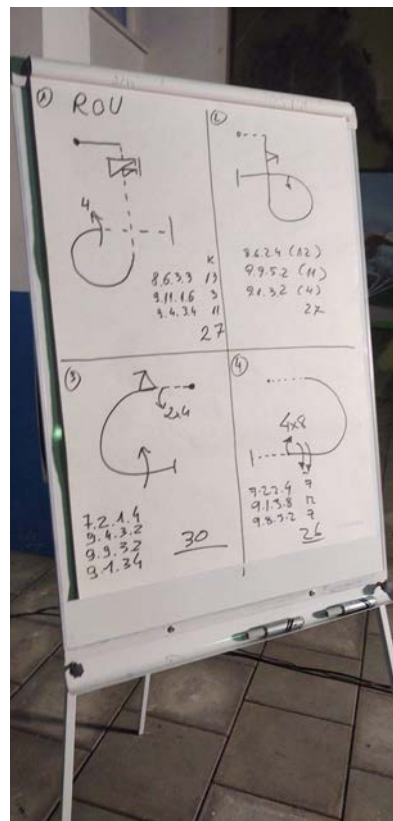 ① ROU
4
K
8.6.3.3 13
9.11.1.6 3
9.4.3.4 11
27
②
8.6.2.4 (12)
9.9.5.2 (11)
9.1.3.2 (4)
27
③
2x4
7.2.1.4
9.4.3.2
9.9.3.2
9.1.3.4
30
④
4x8
7.2.2.4 7
9.1.3.8 12
9.8.5.2 7
26